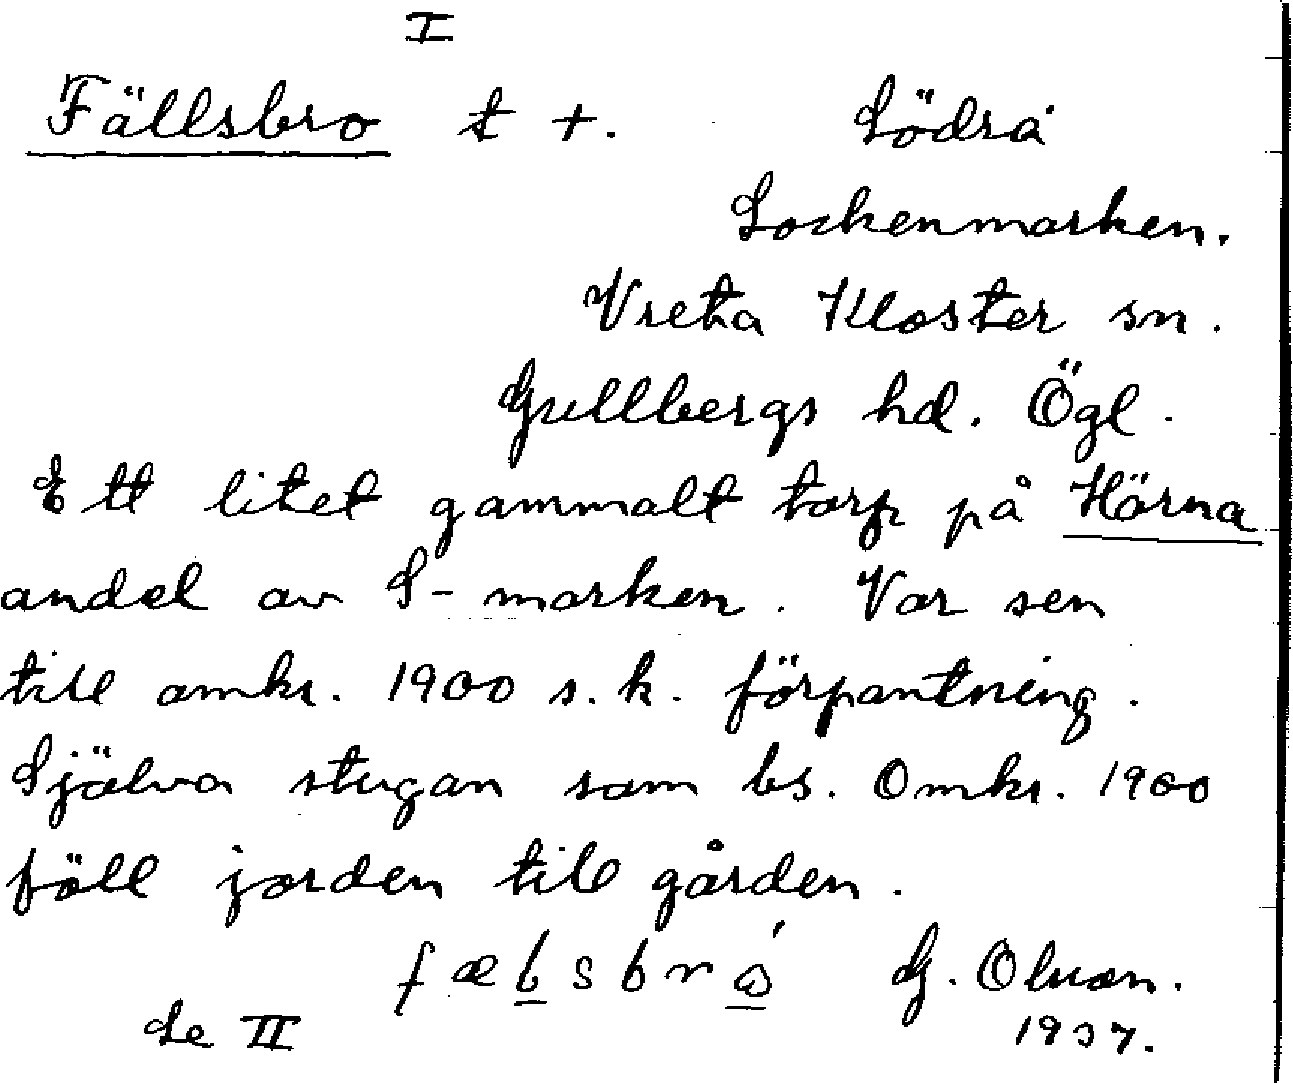 I
Fällsbro t +. Södra
Sockenmarken.
Vreta Kloster sn.
Gullbergs hd. Ögl.
Ett litet gammalt torp på Hörna
andel av S-marken. Var sen
till omkr. 1900 s.k. förpantning.
Själva stugan som bs. Omkr. 1900
föll jorden till gården.
G. Olsson.
Se II 1937.